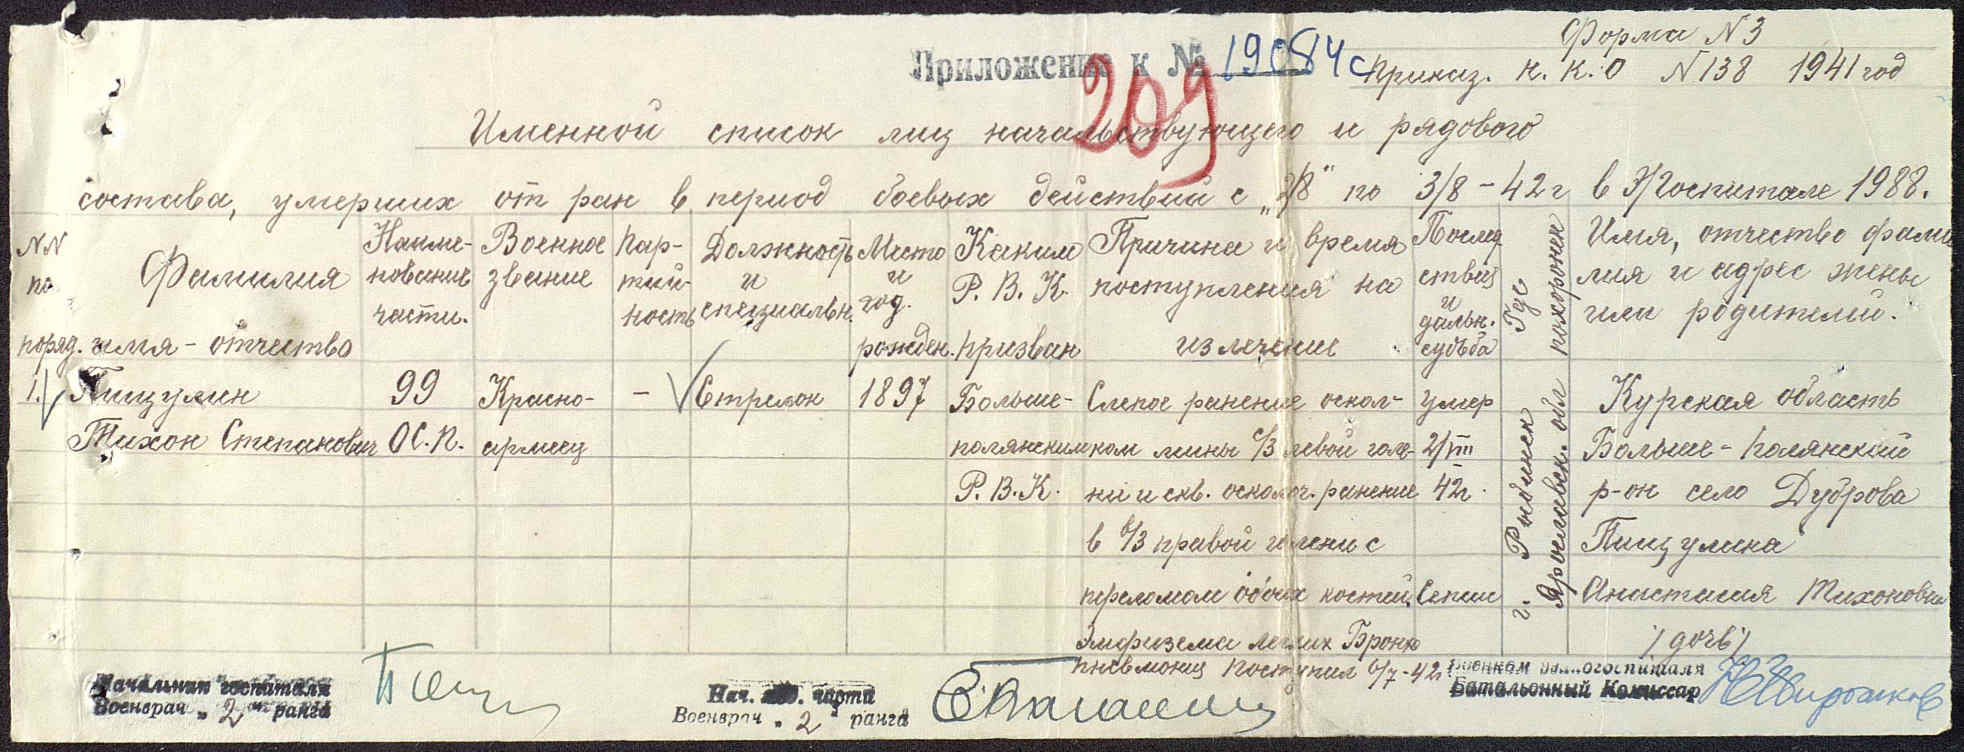 Форма N 3
Приложение к № 19084с
Приказ. Н.К.О N 138 1941 год
209
Именной список лиц начальствующего и рядового
состава, умерших от ран в период боевых действий с „2/8" по 3/8-42г в Э/Госпитале 1988.
NN по поряд.
Фамилия имя-отчество
Наименование части.
Военное звание
Партийность
Должность и специальн.
Место и год рожден.
Каким Р.В.К. призван
Причина и время поступления на излечение
Последствия и дальн. судьба
Где похоронен
Имя, отчество фамилия и адрес жены или родителей.
1. Пищулин
Тихон Степанович
99
ОС.П.
Красно-
армеец
-
Стрелок
1897
Больше-
полянским
Р.В.К.
Слепое ранение оскол-
ком мины с/3 левой голе-
ни и скв. осколоч. ранение
в с/3 правой голени с
переломом обоих костей.
Эмфизема легких Бронхо
пневмония поступил 6/7-42г
умер
2/VIII
42г.
Сепсис
г. Рыбинск
Ярославск. обл
Курская область
Больше-Полянский
р-он село Дуброва
Пищулина
Анастасия Тихоновна
/дочь/
Начальник госпиталя
Военврач „2" ранга
Нач. мед. части
Военврач „2" ранга
Военком эвакогоспиталя
Батальонный Комиссар